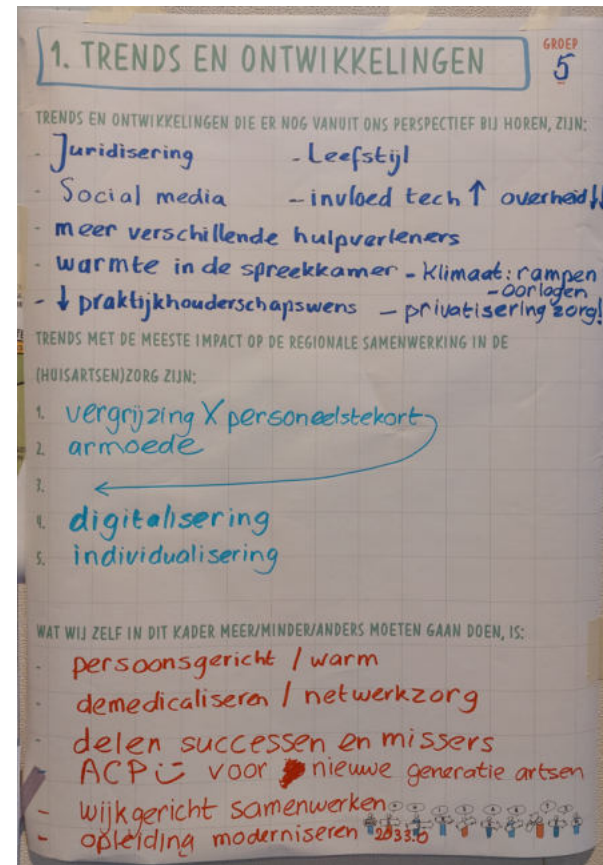 1. TRENDS EN ONTWIKKELINGEN
GROEP
5
TRENDS EN ONTWIKKELINGEN DIE ER NOG VANUIT ONS PERSPECTIEF BIJ HOREN, ZIJN:
- Juridisering - Leefstijl
- Social media - invloed tech ↑ overheid ↓↓
- meer verschillende hulpverleners
- warmte in de spreekkamer - Klimaat: rampen
- oorlogen
- ↓ praktijkhouderschapswens - privatisering zorg!
TRENDS MET DE MEESTE IMPACT OP DE REGIONALE SAMENWERKING IN DE
(HUISARTSEN)ZORG ZIJN:
1. vergrijzing X personeelstekort
2. armoede
3. ←
4. digitalisering
5. individualisering
WAT WIJ ZELF IN DIT KADER MEER/MINDER/ANDERS MOETEN GAAN DOEN, IS:
- persoonsgericht / warm
- demedicaliseren / netwerkzorg
- delen successen en missers
ACP voor nieuwe generatie artsen
- wijkgericht samenwerken
- opleiding moderniseren 2033.0